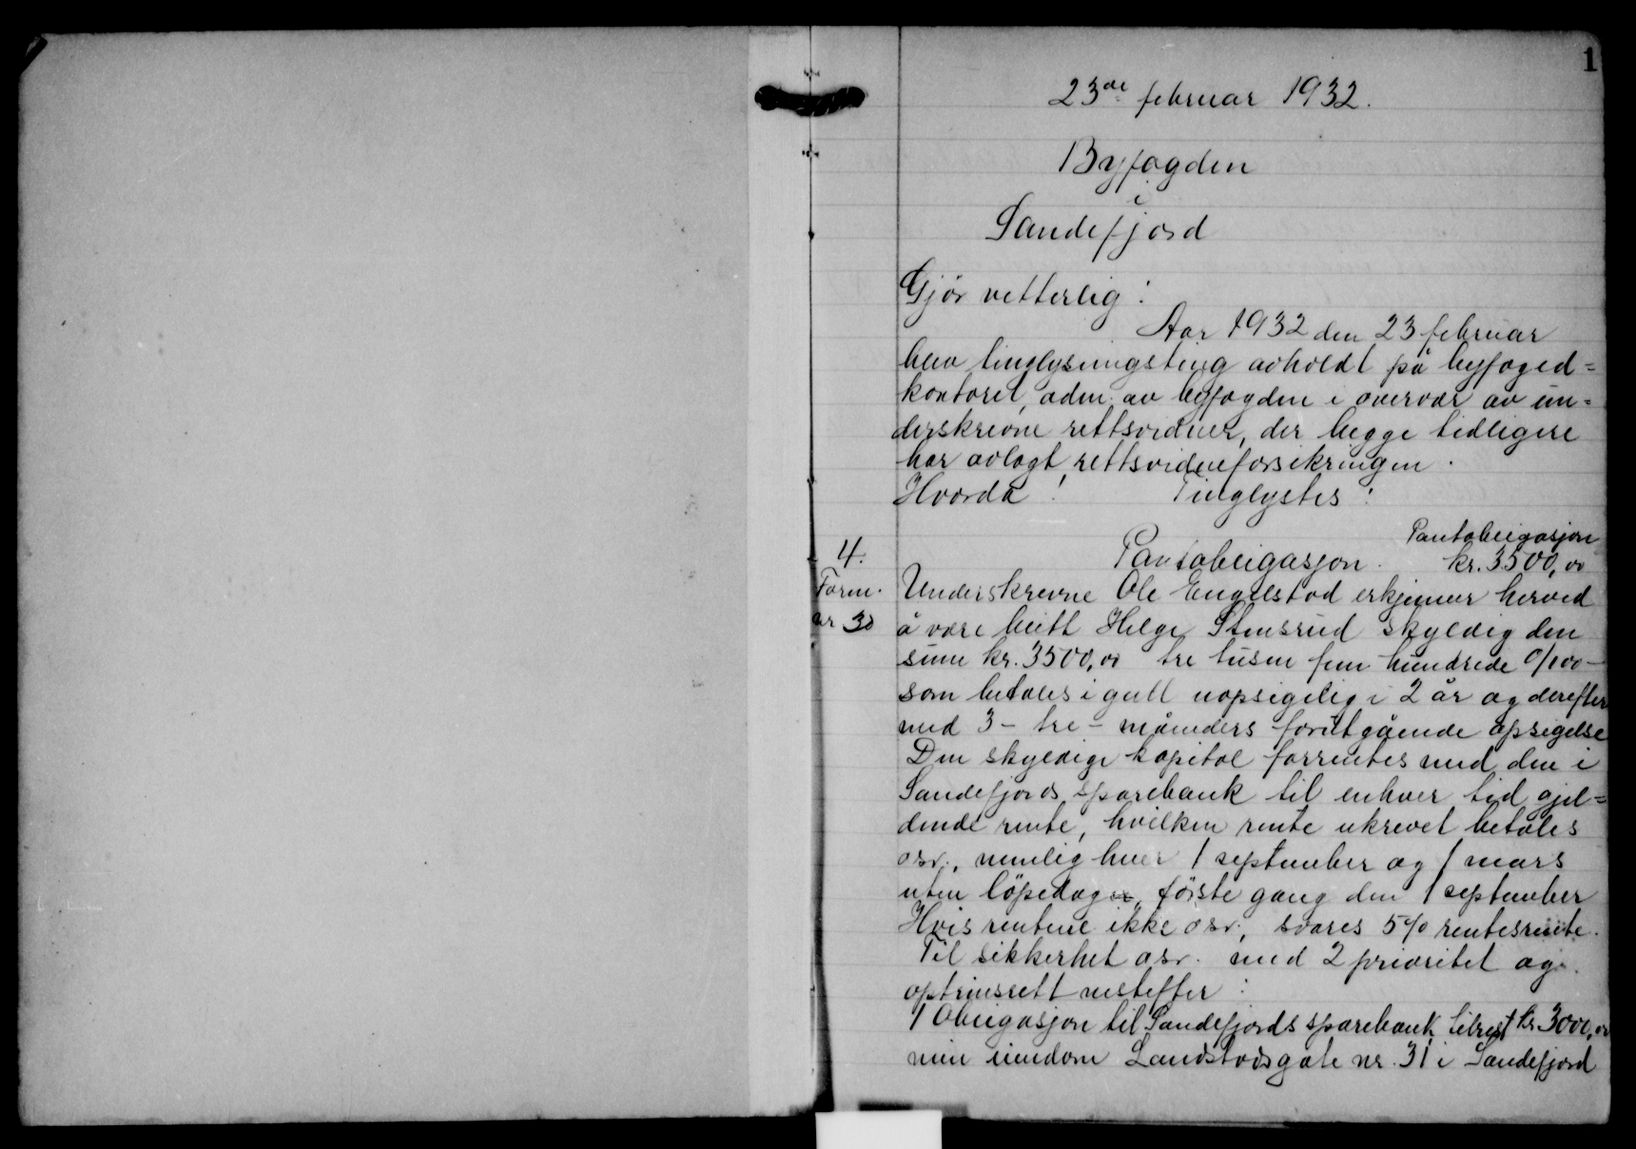 1
23de februar 1932.
Byfogden
i
Sandefjord
Gjör vetterlig:
Aar 1932 den 23 februar
blev tinglysningsting avholdt på byfoged=
kontoret, adm. av byfogden i overvær av un=
derskrevne rettsvidner, der begge tidligere
har avlagt rettsvidneforsikringen.
Hvorda: Tinglystes:
Pantobligasjon
4. Pantobligasjon. kr. 3500,00
Form. Underskrevne Ole Engelstad erkjenner herved
nr 30 å være blitt Helge Stensrud skyldig den
sum kr. 3500,00 tre tusen fem hundrede 0/100 —
som betales i gull uopsigelig i 2 år og derefter
med 3 - tre - måneders forutgående opsigelse
Den skyldige kapital forrentes med den i
Sandefjords sparebank til enhver tid gjel=
dende rente, hvilken rente ukrevet betales
osv., nemlig hver 1 september og 1 mars
uten löpedage, förste gang den 1 september
Hvis rentene ikke osv., svares 5% rentesrente.
Til sikkerhet osv. med 2 prioritet og
optrinsrett nestefter:
1 Obligasjon til Sandefjords sparebank tilrest kr. 3000,00
min eiendom Landstadsgate nr. 31 i Sandefjord